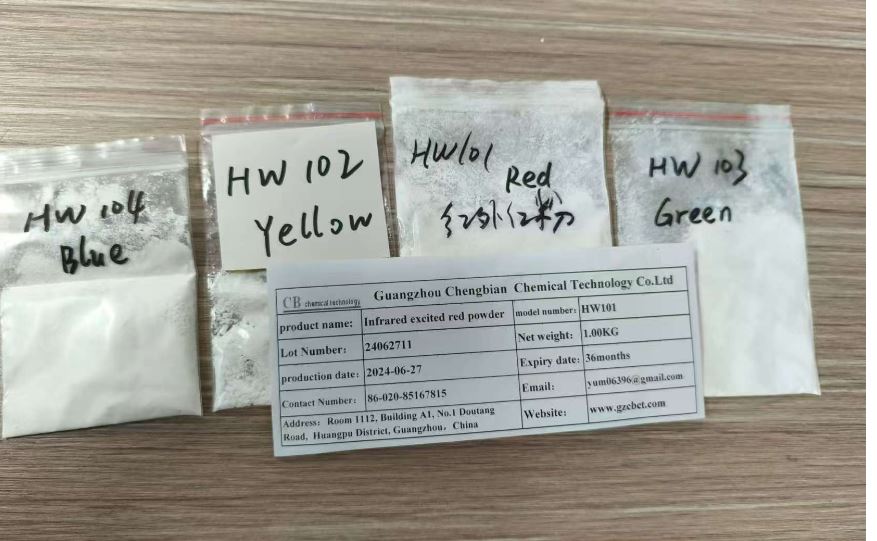 HW 104
Blue
HW 102
Yellow
HW101
Red
红外红粉
HW 103
Green
CB chemical technology
Guangzhou Chengbian Chemical Technology Co.Ltd
product name: Infrared excited red powder model number: HW101
Lot Number: 24062711 Net weight: 1.00KG
production date: 2024-06-27 Expiry date: 36months
Contact Number: 86-020-85167815 Email: yum06396@gmail.com
Address: Room 1112, Building A1, No.1 Doutang
Road, Huangpu District, Guangzhou, China
Website: www.gzcbct.com